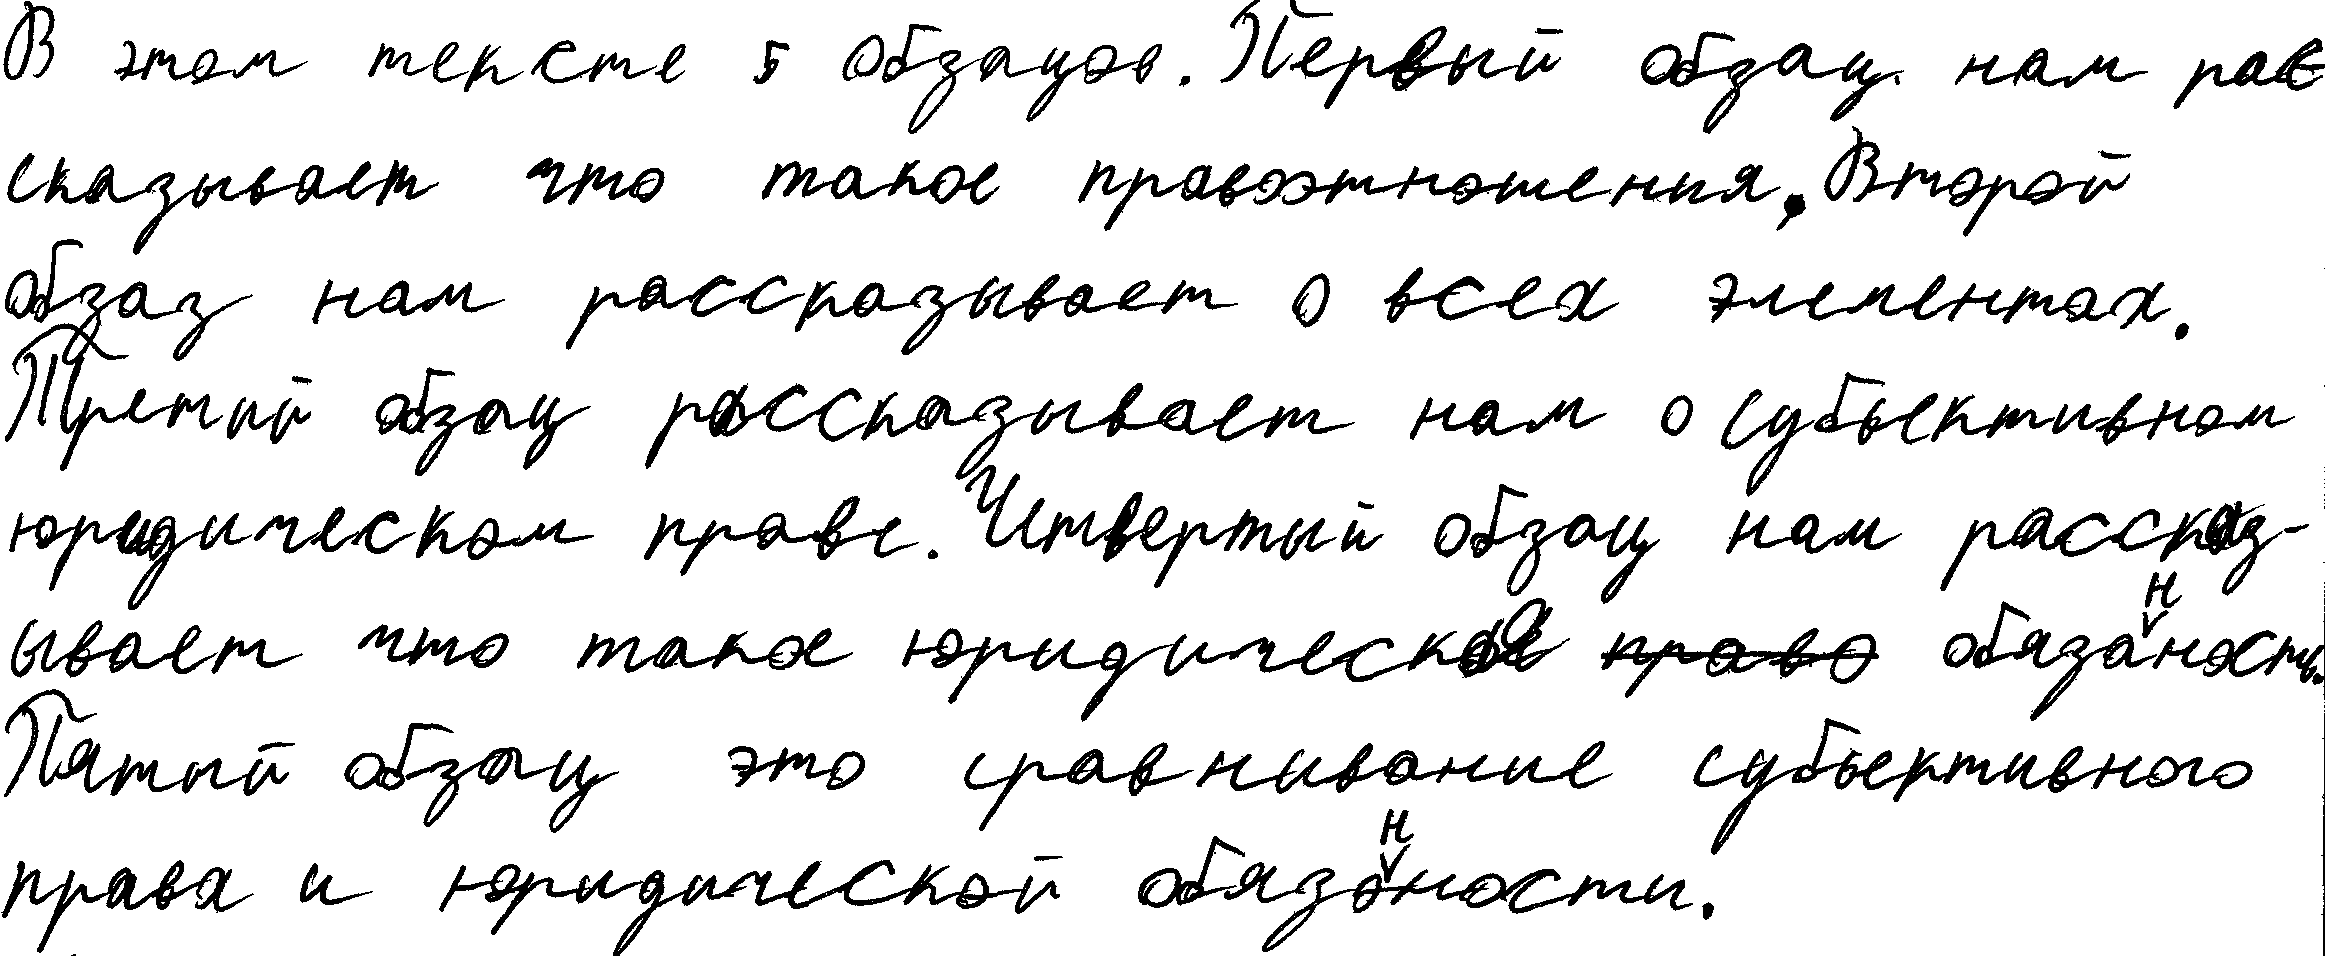 В этом тексте 5 обзацов. Первый обзац нам рас
сказывает что такое правоотношения. Второй
обзаз нам рассказывает о всех элементах.
Третий обзац рассказывает нам о субьективном
юридическом праве. Четвертый обзац нам рассказ-
ывает что такое юридическая право обязанность.
Пятый обзац это сравнивание субьективного
права и юридической обязанности.